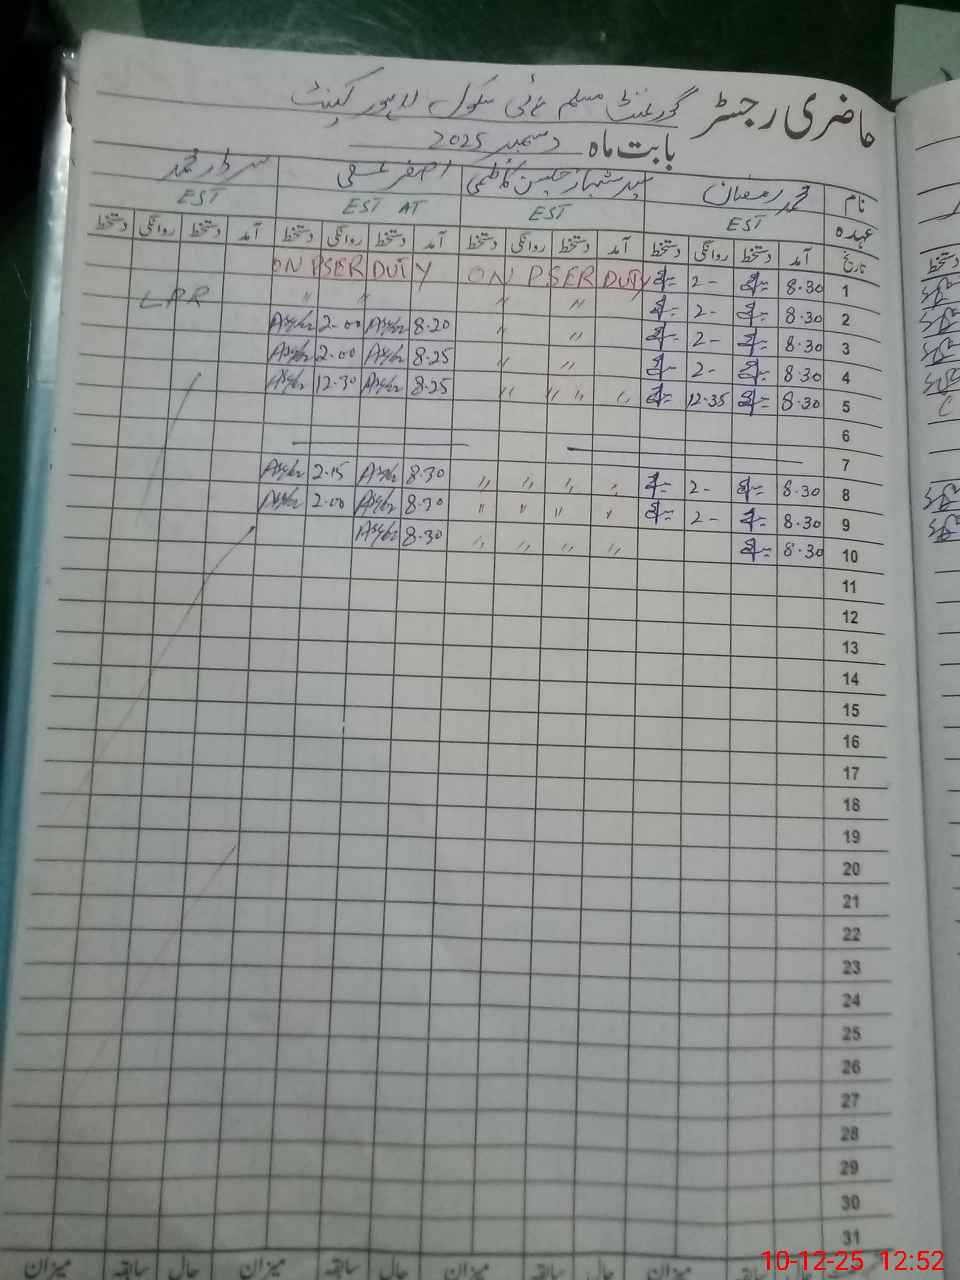 حاضری رجسٹر گورنمنٹ مسلم ہائی سکول لاہور کینٹ
بابت ماہ دسمبر 2025
نام محمد رمضان سید شہباز حسین کاظمی اصغر علی سردار محمد
عہدہ EST EST EST AT EST
تاریخ آمد دستخط روانگی دستخط آمد دستخط روانگی دستخط آمد دستخط روانگی دستخط آمد دستخط روانگی دستخط
1 8.30 2- ON PSER DUTY ON PSER DUTY
2 8.30 2- " " " " LPR
3 8.30 2- " " 8.20 2-00
4 8.30 2- " " 8.25 2.00
5 8.30 12.35 " " " " 8.25 12.30
6
7
8 8.30 2- " " " " 8.30 2.15
9 8.30 2- " " " " 8.30 2.00
10 8.30 " " " " 8.30
11
12
13
14
15
16
17
18
19
20
21
22
23
24
25
26
27
28
29
30
31
میزان سابقہ حال میزان سابقہ حال میزان سابقہ حال میزان سابقہ حال
10-12-25 12:52